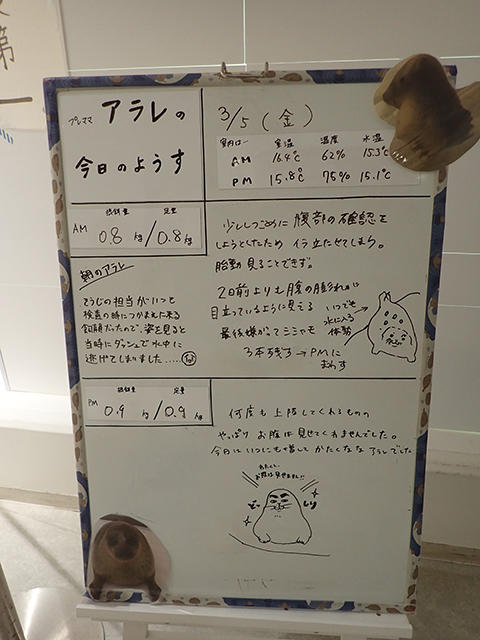 第一
プレママ アラレの
今日のようす
3/5(金)
室温 湿度 水温
AM 16.4℃ 62% 15.3℃
PM 15.8℃ 75% 15.1℃
給餌量 定量
AM 0.8kg/0.8kg
少ししつこめに腹部の確認を
しようとしたため イラ立たせてしまう。
胎動見ることできず。
2日前よりも腹の膨れが
目立っているように見える
最後嫌がってミミャモ
3本残す→PMに
まわす
いつでも
水に入る
体勢
朝のアラレ
そうじの担当がいつも
検査の時につかまえに来る
飼育員だったので、姿を見ると
当時にダッシュで水中に
逃げてしまいました.....
給餌量 定量
PM 0.9kg/0.9kg
何度も上陸してくれるものの
やっぱり お腹は見せてくれませんでした。
今日はいつにも増して かたくなな アラレでした
わたくし、
お腹は見せません!!
どっしり